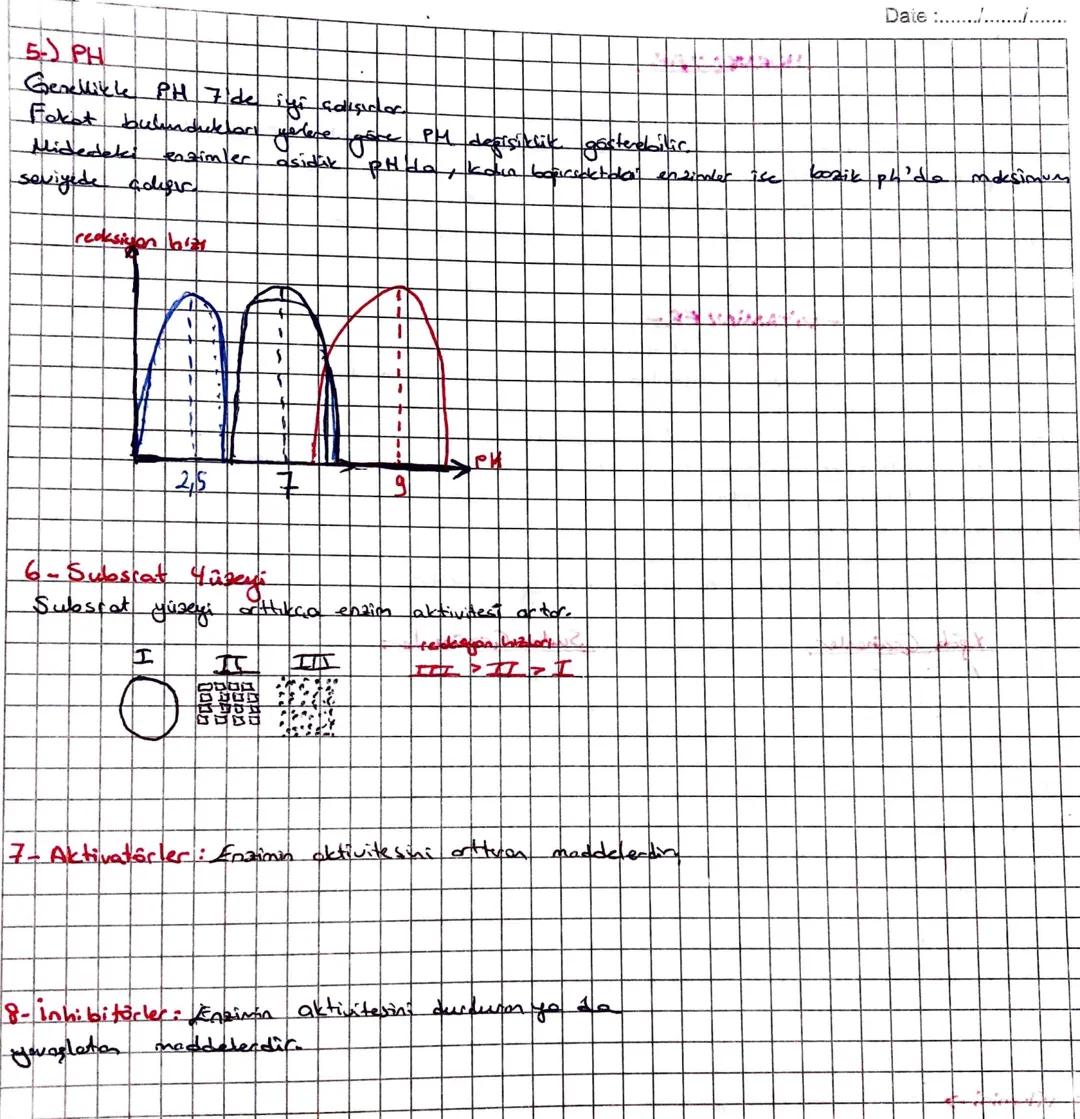 Date :......./......./.......
5-) PH
Genellikle PH 7'de iyi çalışırlar.
Fakat bulundukları yerlere göre PH değişiklik gösterebilir.
Midedeki enzimler asidik pH'da, kalın bağırsaktaki enzimler ise bazik ph'da maksimum
seviyede çalışır.
reaksiyon hızı
PH
2,5 7 9
6- Substrat Yüzeyi
Substrat yüzeyi arttıkça enzim aktivitesi artar.
I II III
reaksiyon hızları
III > II > I
7- Aktivatörler : Enzimin aktivitesini arttıran maddelerdir.
8- İnhibitörler : Enzimin aktivitesini durduran ya da
yavaşlatan maddelerdir.